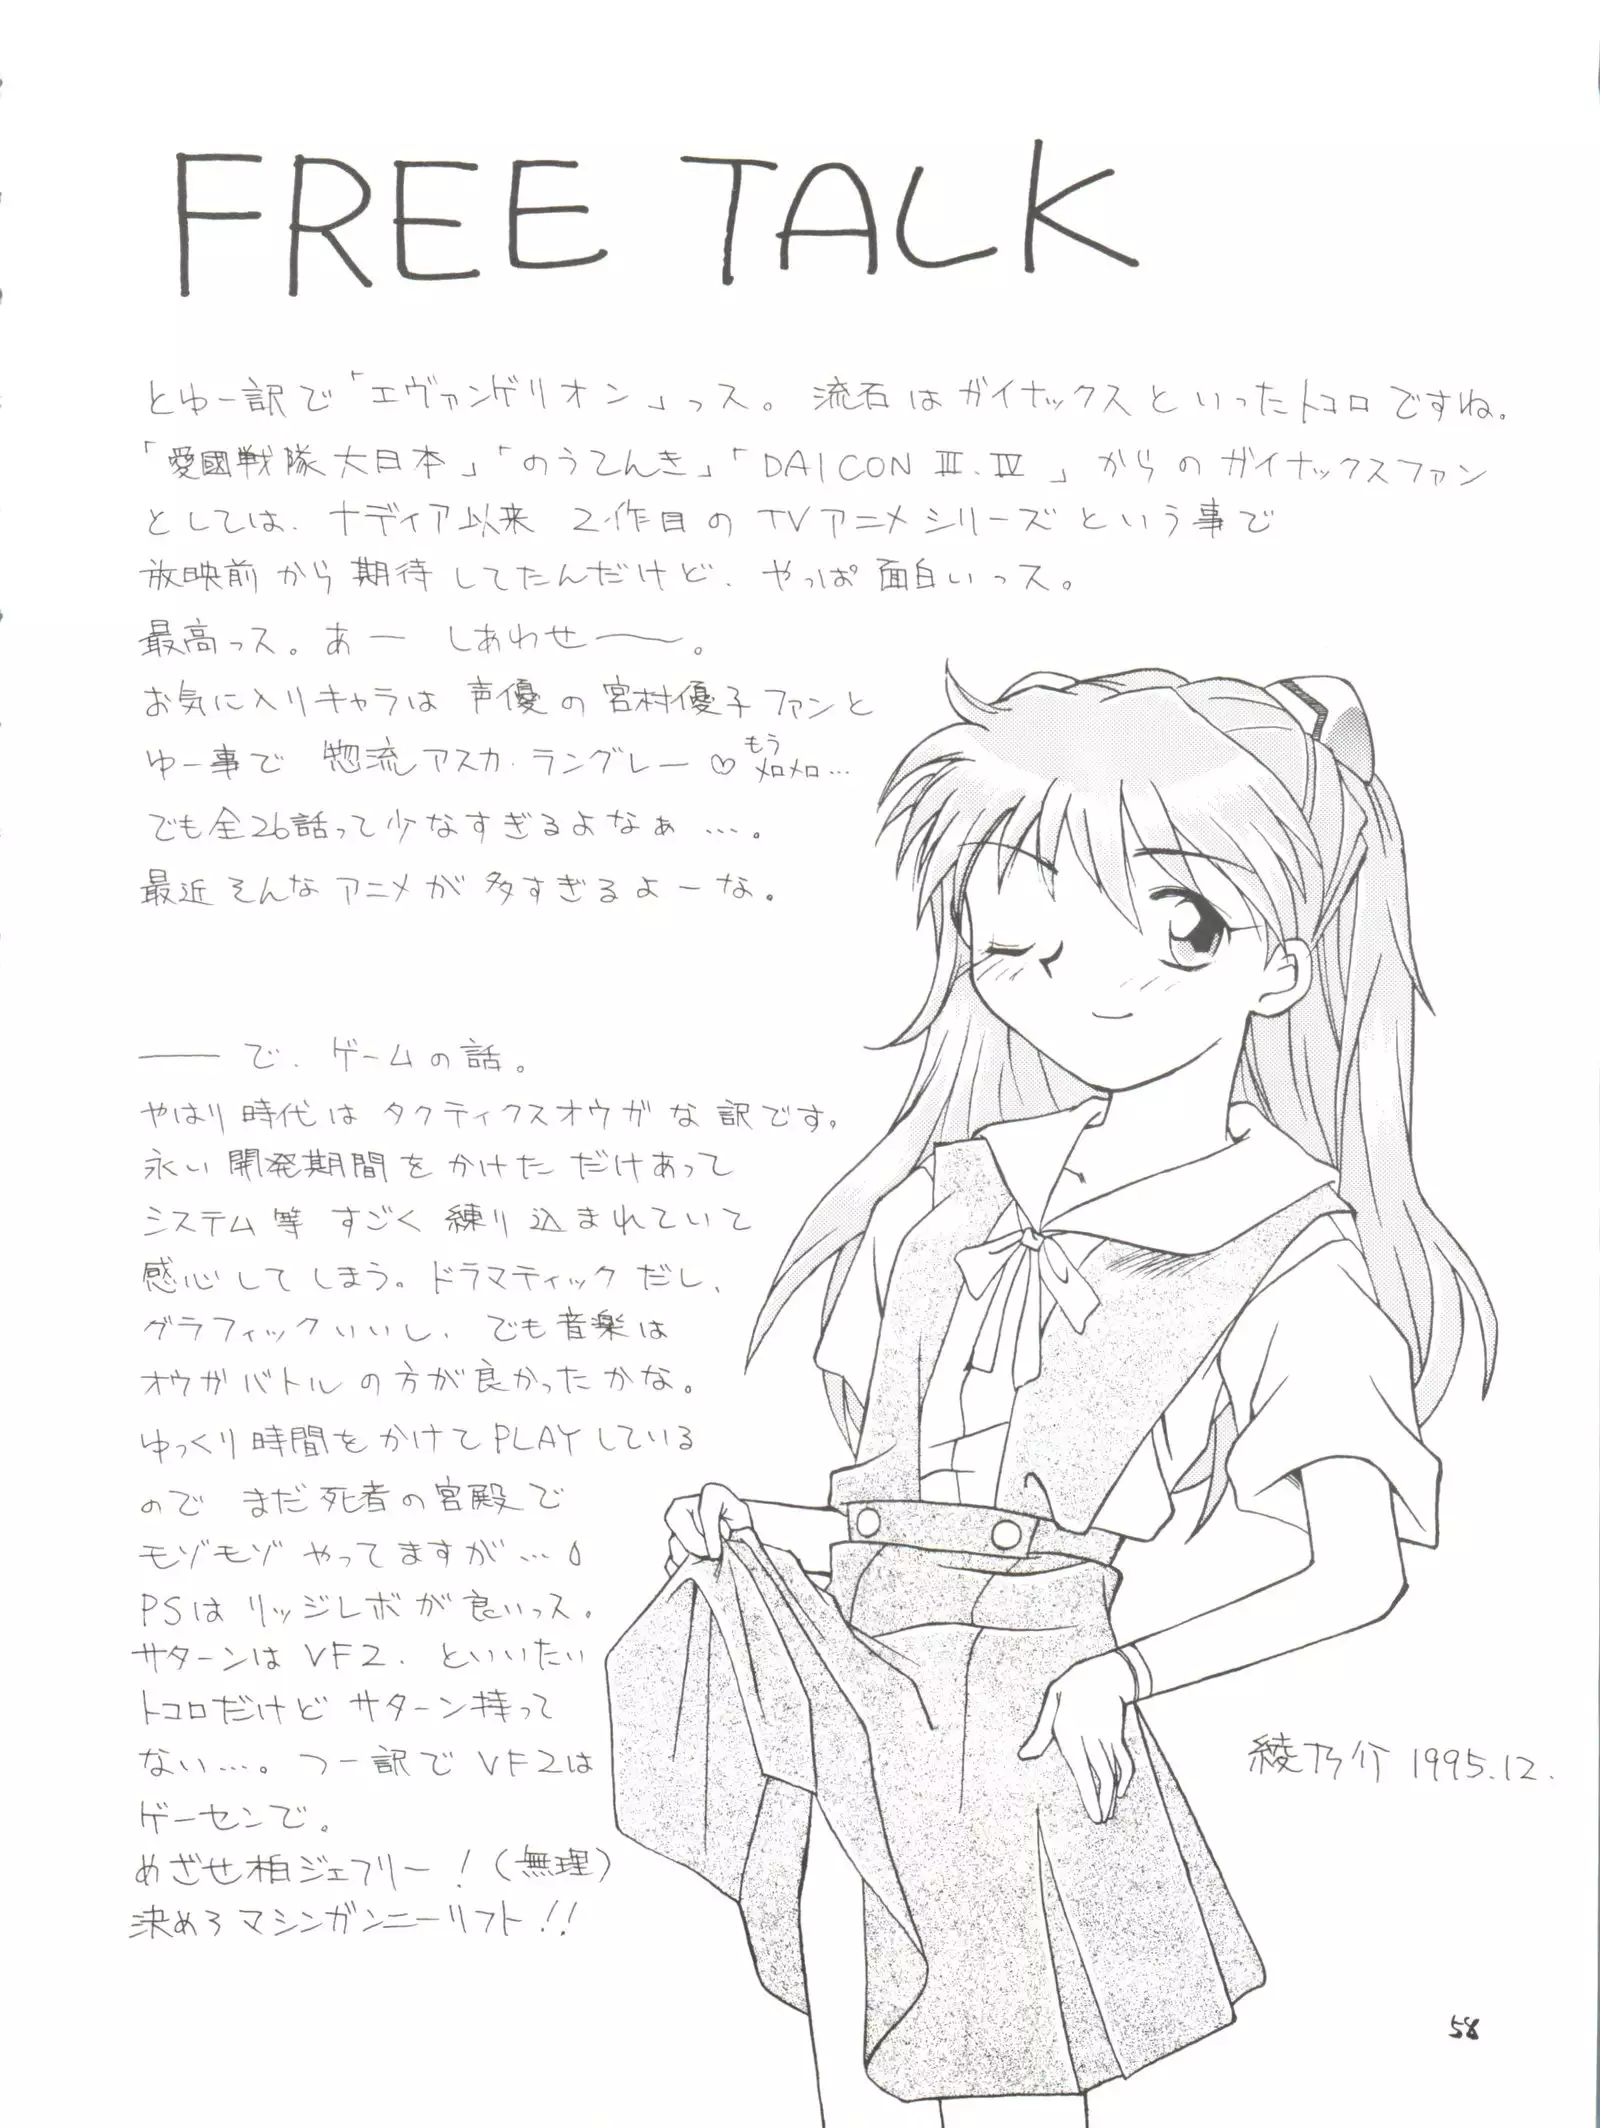 FREE TALK
とゆー訳で「エヴァンゲリオン」っス。流石はガイナックスといったトコロですね。
「愛國戦隊大日本」「のうてんき」「DAICON Ⅲ.Ⅳ」からのガイナックスファン
としては、ナディア以来 2作目のTVアニメシリーズという事で
放映前から期待してたんだけど、やっぱ面白いっス。
最高っス。あー しあわせ――。
お気に入りキャラは 声優の宮村優子ファンと
ゆー事で 惣流アスカ・ラングレー♡もうメロメロ…
でも全26話って少なすぎるよなぁ…。
最近そんなアニメが多すぎるよーな。
――で、ゲームの話。
やはり時代はタクティクスオウガな訳です。
永い開発期間をかけただけあって
システム等すごく練り込まれていて
感心してしまう。ドラマティックだし、
グラフィックいいし、でも音楽は
オウガバトルの方が良かったかな。
ゆっくり時間をかけてPLAYしている
ので まだ死者の宮殿で
モゾモゾやってますが…
PSはリッジレボが良いっス。
サターンはVF2、といいたい
トコロだけど サターン持って
ない…。つー訳でVF2は
ゲーセンで。
めざせ柏ジェフリー!(無理)
決めろマシンガンニーリフト!!
綾乃介 1995.12.
58